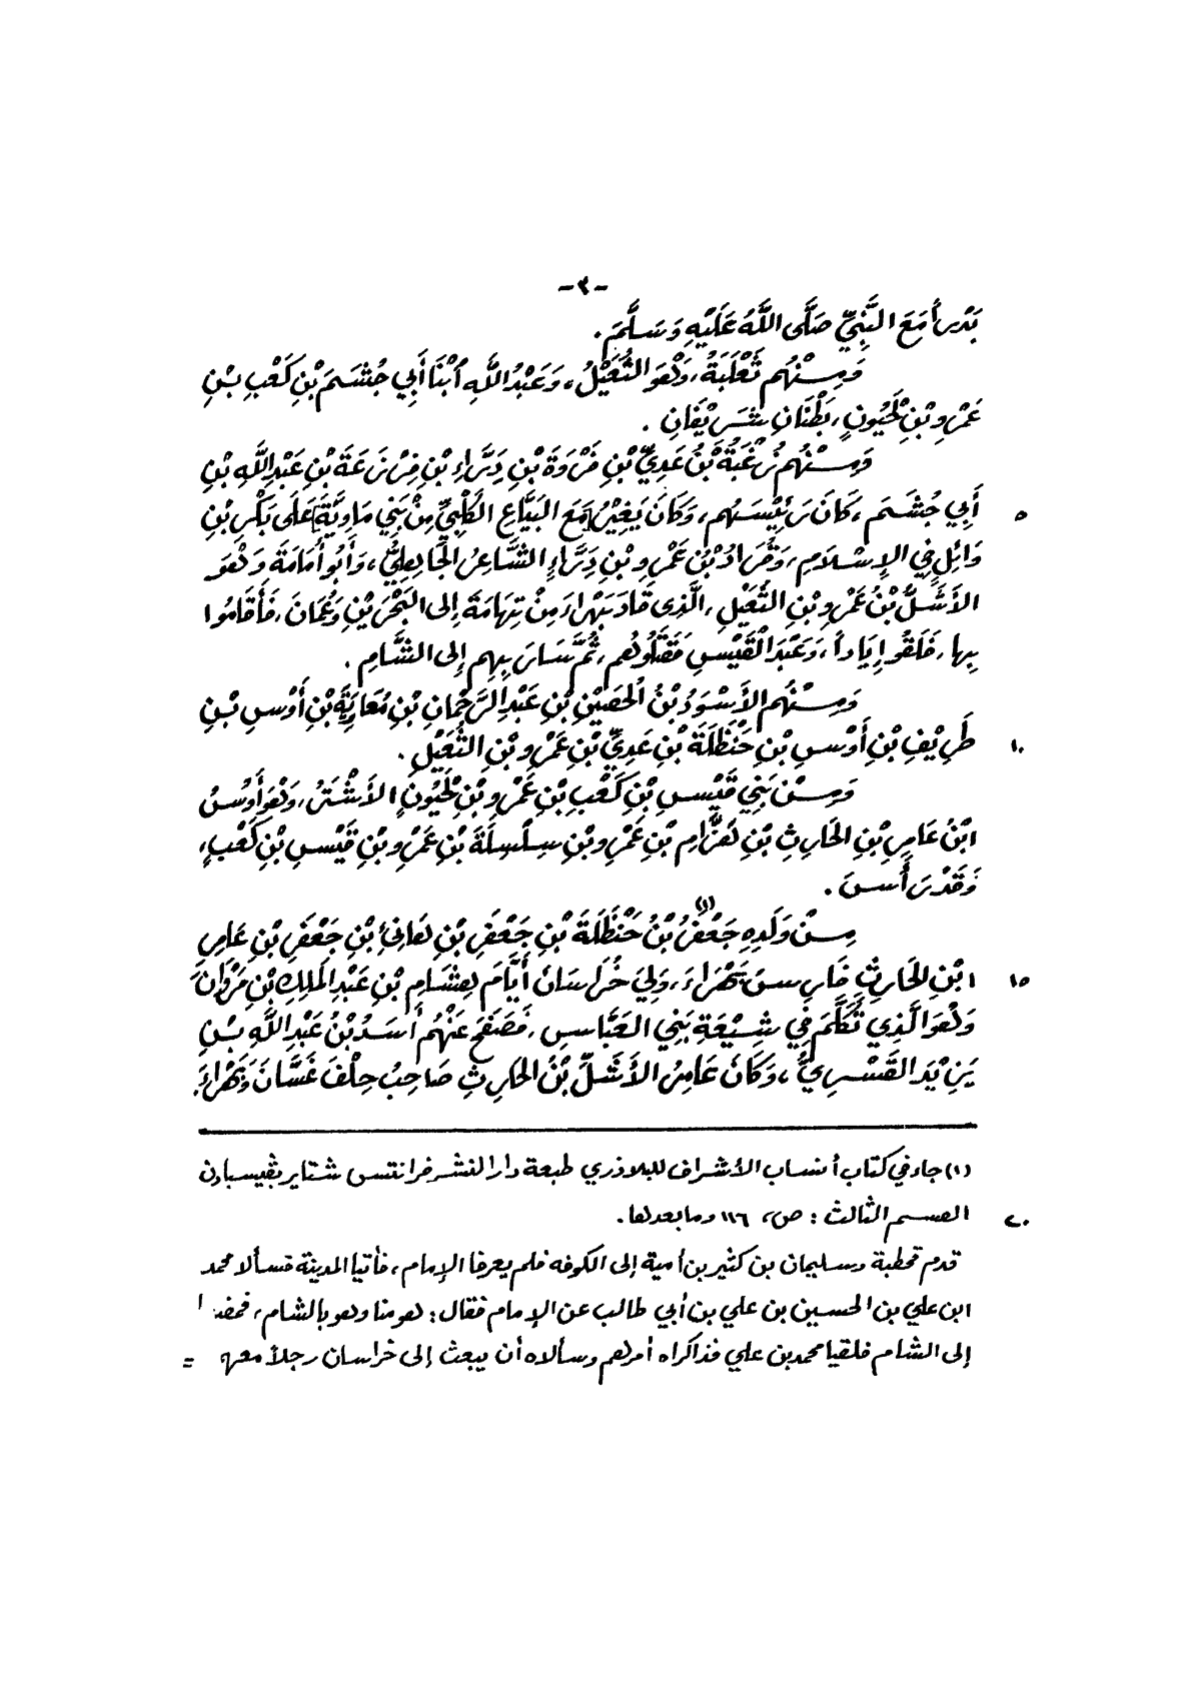 -٣-
بَدْراً مَعَ النَّبِيِّ صَلَّى اللَّهُ عَلَيْهِ وَسَلَّمَ.
وَمِنْهُم ثَعْلَبَةُ، وَهُوَ الثُّعَيْلُ، وَعَبْدُ اللَّهِ ابْنَا أَبِي جُشَمَ بْنِ كَعْبِ بْنِ
عَمْرِو بْنِ لَحْيُونٍ، بَطْنَانِ شَرِيْفَانِ.
وَمِنْهُم زُغْبَةُ بْنُ عَدِيِّ بْنِ فَرْوَةَ بْنِ دَرَّاءِ بْنِ مِرْزَعَةَ بْنِ عَبْدِ اللَّهِ بْنِ
٥ أَبِي جُشَمَ، كَانَ رَئِيْسَهُم، وَكَانَ يَغِيْرُ [مَعَ البَيَّاعِ الكَلْبِيِّ مِنْ بَنِي مَاوِيَّةَ] عَلَى بَكْرِ بْنِ
وَائِلٍ فِي الإِسْلَامِ، وَمُرَادُ بْنُ عَمْرِو بْنِ دَرَّاءِ الشَّاعِرُ الجَاهِلِيُّ، وَأَبُو أُمَامَةَ وَهُوَ
الأَشَلُّ بْنُ عَمْرِو بْنِ الثُّعَيْلِ، الَّذِى قَادَ بَهْرَاءَ مِنْ تِهَامَةَ إِلى البَحْرَيْنِ وَعُمَانَ، فَأَقَامُوا
بِهَا، فَلَقُوا إِيَاداً، وَعَبْدَ القَيْسِ فَقَتَلُوهُم، ثُمَّ سَارَ بِهِم إِلى الشَّامِ.
وَمِنْهُم الأَسْوَدُ بْنُ الحُصَيْنِ بْنِ عَبْدِ الرَّحْمَانِ بْنِ مُعَاوِيَةَ بْنِ أَوْسِ بْنِ
١٠ طَرِيْفِ بْنِ أَوْسِ بْنِ حَنْظَلَةَ بْنِ عَدِيِّ بْنِ عَمْرِو بْنِ الثُّعَيْلِ.
وَمِنْ بَنِي قَيْسِ بْنِ كَعْبِ بْنِ عَمْرِو بْنِ لَحْيُونٍ الأَشْتَرُ، وَهُوَ أَوْسُ
ابْنُ عَامِرِ بْنِ الحَارِثِ بْنِ هَزَّامِ بْنِ عَمْرِو بْنِ سِلْسِلَةَ بْنِ عَمْرِو بْنِ قَيْسِ بْنِ كَعْبٍ،
وَقَدْ رَأَسَ.
مِنْ وَلَدِهِ جَعْفَرُ (١) بْنُ حَنْظَلَةَ بْنِ جَعْفَرِ بْنِ هَانِئِ بْنِ جَعْفَرِ بْنِ عَامِرِ
١٥ ابْنِ الحَارِثِ فَارِسُ بَهْرَاءَ، وَلِيَ خُرَاسَانَ أَيَّامَ هِشَامِ بْنِ عَبْدِ المَلِكِ بْنِ مَرْوَانَ
وَهُوَ الَّذِي تَكَلَّمَ فِي شِيْعَةِ بَنِي العَبَّاسِ، فَصَفَحَ عَنْهُم أَسَدُ بْنُ عَبْدِ اللَّهِ بْنِ
يَزِيْدَ القَسْرِيُّ، وَكَانَ عَامِرُ الأَشَلُّ بْنُ الحَارِثِ صَاحِبُ حِلْفَ غَسَّانَ وَبَهْرَاءَ.
(١) جاء في كتاب أنساب الأشراف للبلاذري طبعة دار النشر فرانتس شتاير بڤيسبادن
٢٠ القسم الثالث: ص، ١١٦ وما بعدها.
قدم قحطبة وسليمان بن كثير بن أمية إلى الكوفه فلم يعرفا الإمام، فأتيا المدينة فسألا محمد
ابن علي بن الحسين بن علي بن أبي طالب عن الإمام فقال: هو منا وهو بالشام، فمضيا
إلى الشام فلقيا محمد بن علي فذاكراه أمرهم وسألاه أن يبعث إلى خراسان رجلاً معهما =